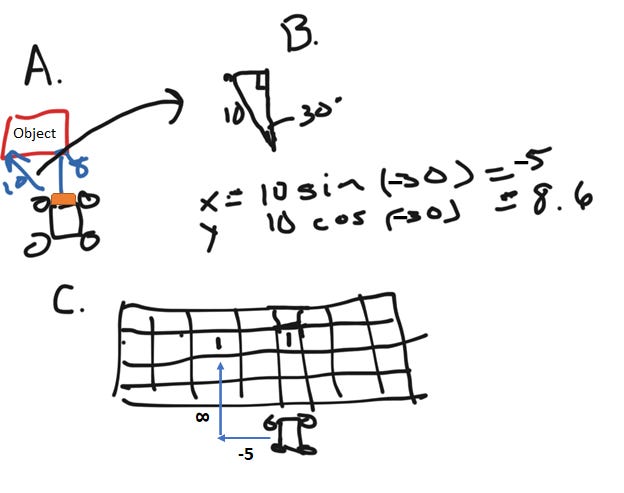 A.
Object
10
8
B.
10
30°
x = 10 sin (-30) = -5
y 10 cos (-30) = 8.6
C.
1 1
8
-5